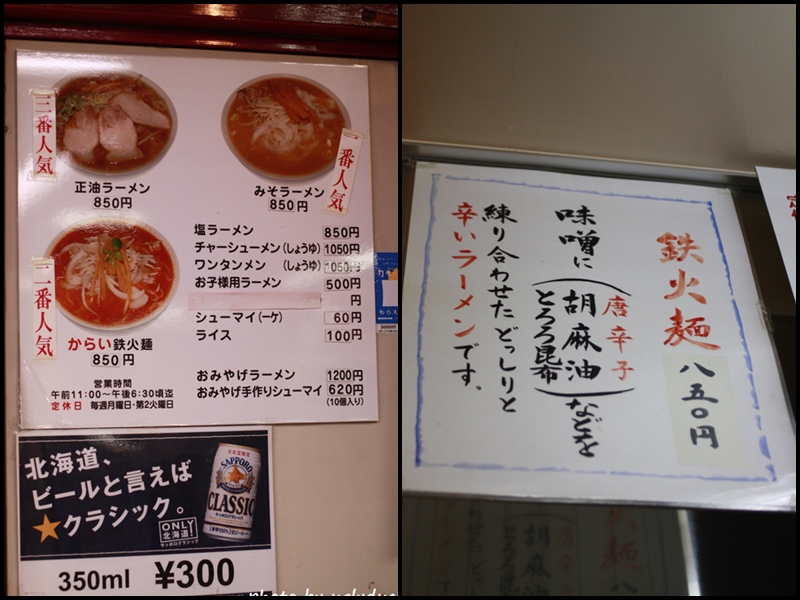 三番人気
正油ラーメン
850円
一番人気
みそラーメン
850円
二番人気
からい鉄火麺
850円
塩ラーメン 850円
チャーシューメン(しょうゆ) 1050円
ワンタンメン (しょうゆ) 1050円
お子様用ラーメン 500円
円
シューマイ(一ケ) 60円
ライス 100円
おみやげラーメン 1200円
おみやげ手作りシューマイ 620円
(10個入り)
営業時間
午前11:00〜午後6:30頃迄
定休日 毎週月曜日・第2火曜日
北海道、
ビールと言えば
★クラシック。
SAPPORO
CLASSIC
ONLY
北海道!
サッポロクラシック
350ml ¥300
鉄火麺 八五〇円
味噌に(唐辛子
胡麻油
とろろ昆布)などを
練り合わせたどっしりと
辛いラーメンです。